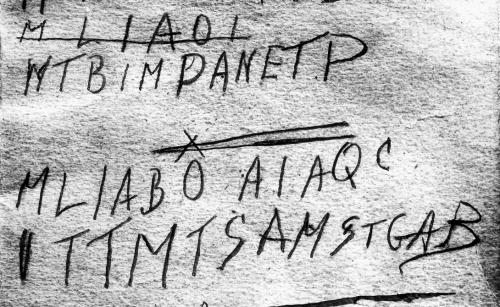 MLIAOI
WTBIMPANETP
MLIABOAIAQC
ITTMTSAMSTGAB